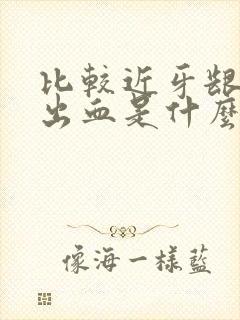 比較近牙齦
出血是什麼
像海一樣藍